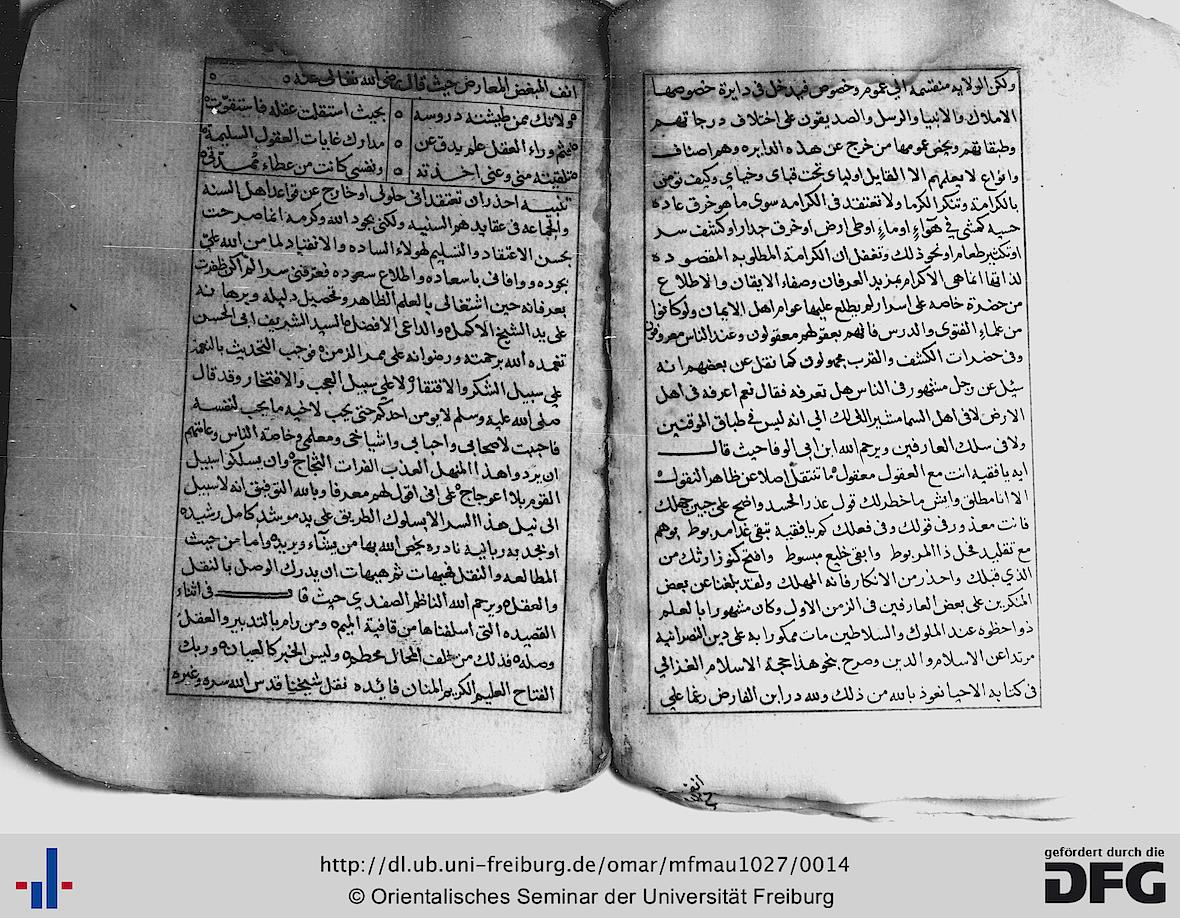 ولكن الولاية منقسمة الي عموم وخصوص فيدخل في دايرة خصوصها
الاملاك والانبيا والرسل والصديقون على اختلاف درجاتهم
وطبقاتهم ويخص عمومها من خرج عن هذه الدايره وهم اصناف
وانواع لا يعلمهم الا القايل اولياي تحت قباي وخباي وكيف تومن
بالكرامة وتنكر الكرما ولا تعتقد في الكرامه سوى ما هو خرق عاده
حسيه كمشي في هوآءٍ او مآءٍ او طي ارض او خرق جدار او كشف سر
او تكثير طعام او نحو ذلك وتغفل ان الكرامة المطلوبه المقصوده
لذاتها انما هي الاكرام بمزيد العرفان وصفاء الايقان والاطلاع
من حضرة خاصه على اسرار لم يطلع عليها عوام اهل الايمان ولو كانوا
من علماء الفتوى والدرس فانهم بعقولهم معقولون وعند الناس معروفون
وفي حضرات الكشف والقرب مجهولون كما نقل عن بعضهم انه
سئل عن رجل مشهور في الناس هل تعرفه فقال نعم اعرفه في اهل
الارض لا في اهل السما مشيرا لذلك الي انه ليس في طباق الموقنين
ولا في سلك العارفين ويرحم الله ابن ابي الوفا حيث قال
ايه يا فقيه انت مع العقول معقول ما تنتقل اصلا عن ظاهر النقول
الا انا مطلق وايش ما خطر لك قول عذر الحسد واضح على جبين جهلك
فانت معذور في قولك وفي فعلك كم يا فقيه تبقى غدا مربوط بوهم
مع تقليد فحل ذا المربوط وابقى خليع مبسوط وافتح كنوز ارثك من
الذي قبلك واحذر من الانكار فانه المهلك ولقد بلغنا عن بعض
المنكرين على بعض العارفين في الزمن الاول وكان مشهورا بالعلم
ذو احظوه عند الملوك والسلاطين مات ممكورا به على دين النصرانيه
مرتدا عن الاسلام والدين وصرح بنحو هذا حجة الاسلام الغزالي
في كتابه الاحيا نعوذ بالله من ذلك ولله در ابن الفارض رغما علي
انف
انف المبغض المعارض حيث قال رضي الله تعالى عنه
ولا تك ممن طيشته دروسه بحيث استقلت عقله فاستفزت
فثم وراء العقل علم يدق عن مدارك غايات العقول السليمة
تلقيته مني وعني اخذته ونفسي كانت من عطاء ممدتي
تنبيه احذر ان تعتقد اني حلولي او خارج عن قواعد اهل السنه
والجماعه في عقايدهم السنيه ولكني بجود الله وكرمه انما صرحت
بحسن الاعتقاد والتسليم لهولاء الساده والانقياد لما من الله علي
بجوده ووافاني باسعاده واطلاع سعوده فعرفني سرا لم اكن ظفرت
بعرفانه حين اشتغالي بالعلم الظاهر وتحصيل دليله وبرهانه
على يد الشيخ الاكمل والداعي الافضل السيد الشريف ابي الحسن
تغمده الله برحمته ورضوانه على ممر الزمن فوجب التحدث بالنعمة
على سبيل الشكر والافتقار لا على سبيل العجب والافتخار وقد قال
صلى الله عليه وسلم لا يومن احدكم حتى يحب لاخيه ما يحب لنفسه
فاحببت لاصحابي واحبابي واشياخي ومعلمي وخاصة الناس وعامتهم
ان يردوا هذا المنهل العذب الفرات الثجاج وان يسلكوا سبيل
القوم بلا اعوجاج على اني اقول لهم معرفا وبالله التوفيق انه لا سبيل
الى نيل هذا السر الا بسلوك الطريق على يد مرشد كامل رشيده
او بجذبه ربانيه نادره يخص الله بها من يشاء ويريده واما من حيث
المطالعه والنقل فهيهات ثم هيهات ان يدرك الوصل بالنقل
والعقل ويرحم الله الناظم الصفدي حيث قال في اثناء
القصيده التي اسلفناها من قافية الميم ومن رام بالتدبير والعقل
وصله فذلك من خلف المحال محطم وليس الخبر كالعيان وربك
الفتاح العليم الكريم المنان فايده نقل شيخنا قدس الله سره وغيره
http://dl.ub.uni-freiburg.de/omar/mfmau1027/0014
© Orientalisches Seminar der Universität Freiburg
gefördert durch die
DFG